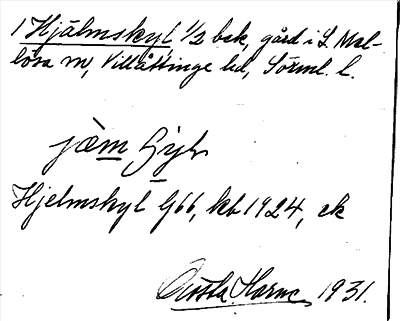 1 Hjälmskyl 1/2 bck, gård i L. Mel-
lösa sn, Villåttinge hd, Sörml. l.
jäm
Hjelmskyl G66, kb 1924, ek
Gösta Harne 1931.